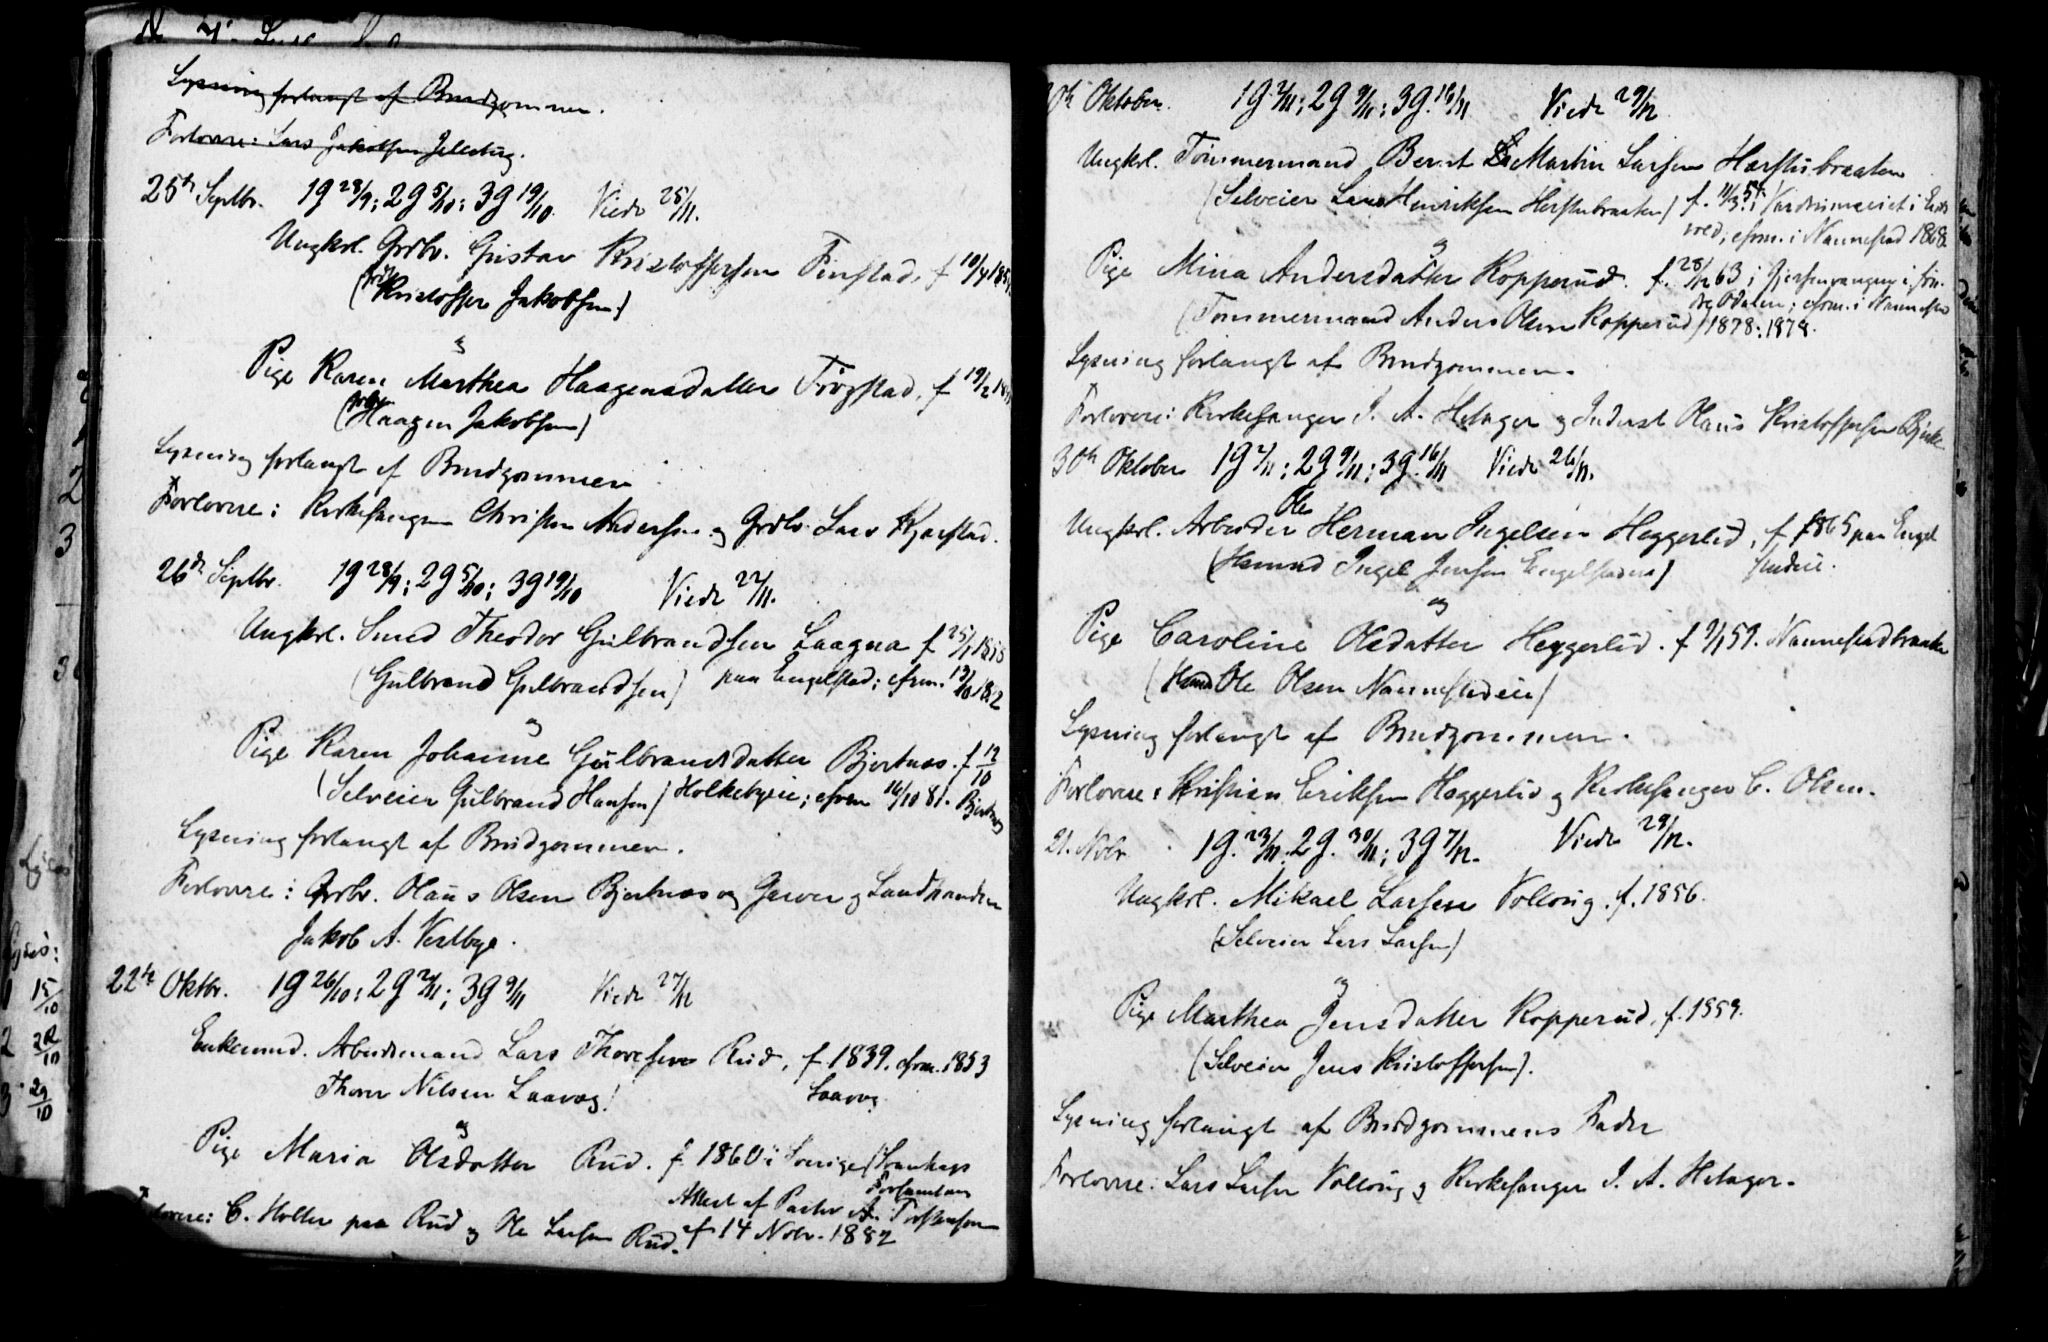 Lysning forlangt af Brudgommen.
Forlovere: Lars Jakobsen
25de Septbr. 1g 28/9; 2g 5/10; 3g 19/10. Viede 25/11.
Ungkrl. Grdbr. Gustav Kristoffersen Finstad, f 10/4 185
(Kristoffer Jakobsen)
og
Pige Karen Marthea Haagensdatter Frogstad, f 19/2 18
(Haagen Jakobsen)
Lysning forlangt af Brudgommen
Forlovere: Kirkesanger Christen Andersen og Grdbr. Lars Kjærstad.
26de Septbr. 1g 28/9; 2g 5/10; 3g 19/10 Viede 27/11.
Ungkrl. Smed Theodor Gulbrandsen Laagna f 25/1 1858
(Gulbrand Gulbrandsen) paa Engelstad; cfrm. 13/10 1872
og
Pige Karen Johanne Gulbrandsdatter Bjertnæs. f 12/10
(Selveier Gulbrand Hansen) Holkebyeie; cfrm 16/10 81. Bjertnæs
Lysning forlangt af Brudgommen.
Forlovere: Grdbr. Olaus Olsen Bjertnæs og Garver og Landhandler
Jakob A. Vestbye.
22de Oktbr. 1g 26/10; 2g 2/11; 3g 9/11 Viede 27/12
Enkemnd. Arbeidsmand Lars Thoresen Rud, f 1839. cfrm. 1853
Thorer Nilsen Laavæg) Laavæg
og
Pige Maria Olsdatter Rud. f. 1860 i Sverige
Forsamlam
Attest af Pastor A. Torstensson
Forlovere: C. Holter paa Rud og Ole Larsen Rud. af 14 Novbr. 1882
30te Oktober. 1g 2/11; 2g 9/11; 3g. 16/11 Viede 29/12
Ungkrl. Tømmermand Bernt Martin Larsen Hærstubraaten
(Selveier Lars Henriksen Herstubraaten) f. 11/3 54. i Værdrumseiet i Eids
vold; cfrm. i Nannestad 1868.
og
Pige Mina Andersdatter Kopperud. f. 28/12 63 i
Odalen; cfrm. i Nannestad
(Tømmermand Anders Olsen Kopperud) 1878. 1878.
Lysning forlangt af Brudgommen.
Forlovere: Kirkesanger I. A. Hetager og Inderst Olaus Kristoffersen Bjerke
30te Oktober 1g 2/11; 2g 9/11; 3g. 16/11 Viede 26/12.
Ungkrl. Arbeider Ole Herman Ingelsen Heggerlid, f 1865 paa Engel
(Hsmnd Ingel Jensen Engelstadeie) stadeie.
og
Pige Caroline Olsdatter Heggerlid. f 9/1 59. Nannestadbraaten
(Hsmd Ole Olsen Nannestadeie)
Lysning forlangt af Brudgommen.
Forlovere: Kristian Eriksen Heggerlid og Kirkesanger C. Olsen.
21. Novbr 1g. 23/11. 2g. 30/11; 3g 7/12. Viede 29/12.
Ungkrl. Mikael Larsen Vollaug. f. 1856.
(Selveier Lars Larsen)
og
Pige Marthea Jensdatter Kopperud, f. 1859.
(Selveier Jens Kristoffersen).
Lysning forlangt af Brudgommens Fader
Forlovere: Lars Larsen Vollaug og Kirkesanger I. A. Hetager.